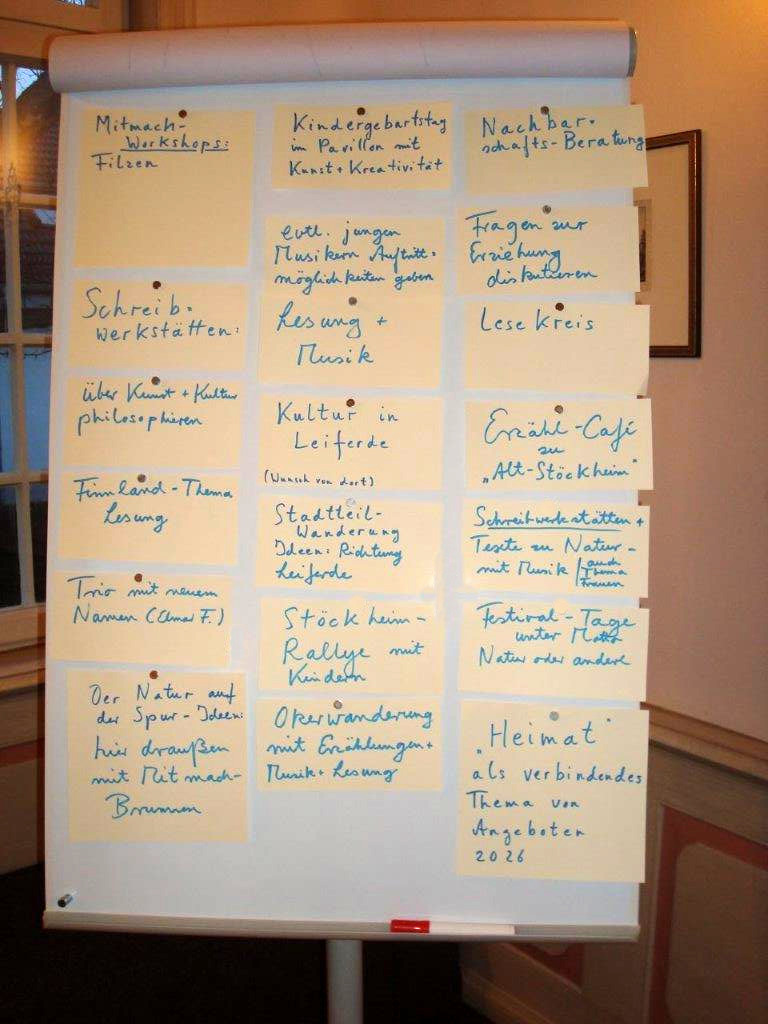 Mitmach-
Workshops:
Filzen
Schreib-
werkstätten:
über Kunst + Kultur
philosophieren
Finnland-Thema
Lesung
Trio mit neuem
Namen (Elmar F.)
Der Natur auf
der Spur - Ideen:
hier draußen
mit Mitmach-
Brunnen
Kindergebartstag
im Pavillon mit
Kunst + Kreativität
evtl. jungen
Musikern Auftritt-
möglichkeiten geben
Lesung +
Musik
Kultur in
Leiferde
(Wunsch von dort)
Stadtteil-
Wanderung
Ideen: Richtung
Leiferde
Stöckheim-
Rallye mit
Kindern
Okerwanderung
mit Erzählungen +
Musik + Lesung
Nachbar-
schafts-Beratung
Fragen zur
Erziehung
diskutieren
Lese Kreis
Erzähl-Café
zu
„Alt-Stöckheim"
Schreibwerkstätten +
Texte zu Natur -
mit Musik / auch
Thema
Frauen
Festival-Tage
unter Motto
Natur oder andere
„Heimat"
als verbindendes
Thema von
Angeboten
2026